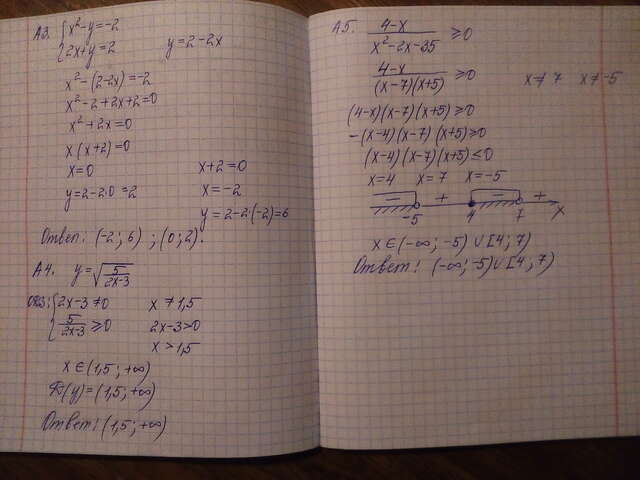 А3. { x²-y=-2
{ 2x+y=2   y=2-2x
x²-(2-2x)=-2
x²-2+2x+2=0
x²+2x=0
x(x+2)=0
x=0   x+2=0
y=2-2·0=2   x=-2
y=2-2·(-2)=6
Ответ: (-2; 6) ; (0; 2).
А4. y=√(5/(2x-3))
ОДЗ: { 2x-3≠0   x≠1,5
{ 5/(2x-3) ≥0   2x-3>0
x>1,5
x∈(1,5; +∞)
D(y)=(1,5; +∞)
Ответ: (1,5; +∞)
А5. (4-x)/(x²-2x-35) ≥0
(4-x)/((x-7)(x+5)) ≥0   x≠7   x≠-5
(4-x)(x-7)(x+5)≥0
-(x-4)(x-7)(x+5)≥0
(x-4)(x-7)(x+5)≤0
x=4   x=7   x=-5
- + - +
-5 4 7 x
x∈(-∞; -5)∪[4; 7)
Ответ: (-∞; -5)∪[4; 7)